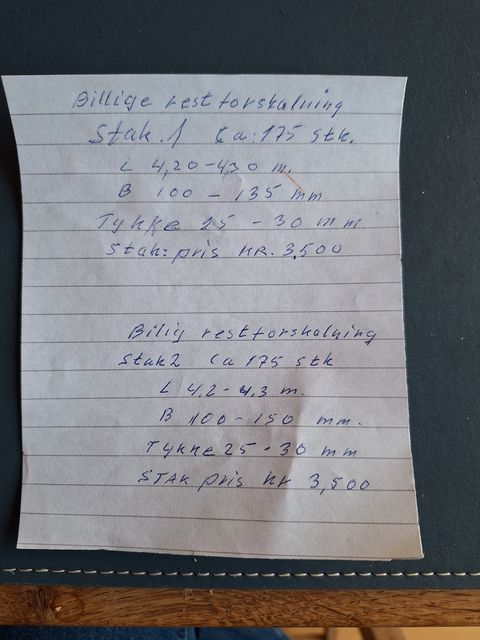 Billige rest forskalning
Stak. 1 Ca: 175 stk.
L 4,20-4,30 m.
B 100 - 135 mm
Tykke 25 - 30 mm
Stak: pris KR. 3,500
Bilig restforskalning
Stak 2 Ca 175 stk
L 4,2-4,3 m.
B 100-150 mm.
Tykke 25-30 mm
STAK pris kr 3,500